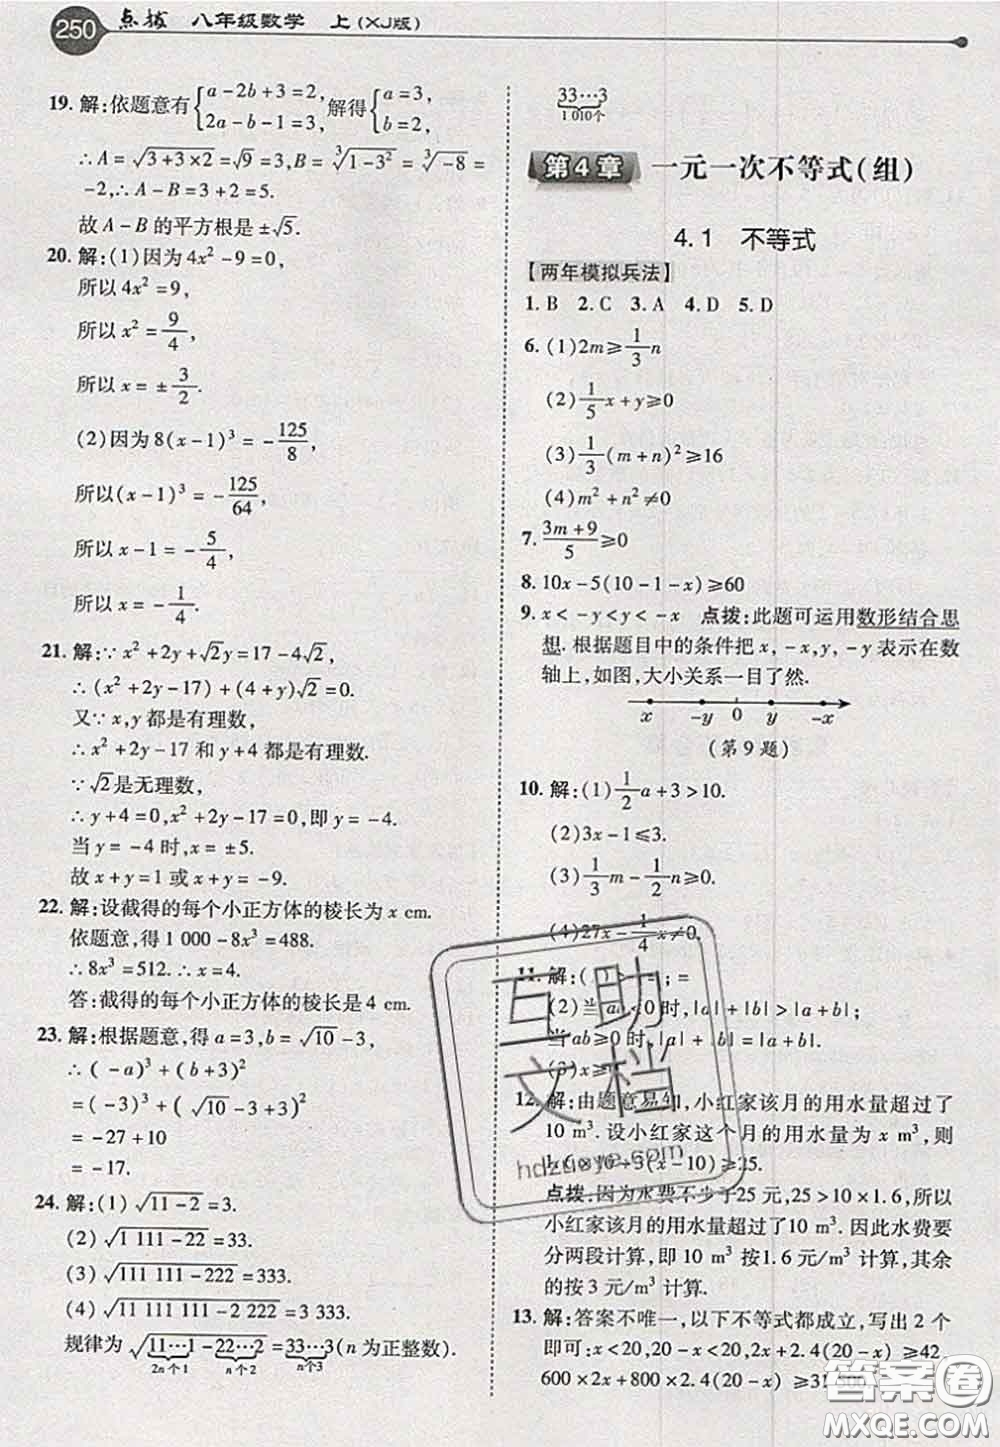 250 点拨 八年级数学 上(XJ版)
19. 解:依题意有{a-2b+3=2, 2a-b-1=3, 解得{a=3, b=2,
∴A=√(3+3×2)=√9=3,B=∛(1-3²)=∛(-8)=
-2,∴A-B=3+2=5.
故A-B的平方根是±√5.
20. 解:(1)因为4x²-9=0,
所以4x²=9,
所以x²=9/4,
所以x=±3/2.
(2)因为8(x-1)³=-125/8,
所以(x-1)³=-125/64,
所以x-1=-5/4,
所以x=-1/4.
21. 解:∵x²+2y+√2y=17-4√2,
∴(x²+2y-17)+(4+y)√2=0.
又∵x,y都是有理数,
∴x²+2y-17和y+4都是有理数.
∵√2是无理数,
∴y+4=0,x²+2y-17=0,即y=-4.
当y=-4时,x=±5.
故x+y=1或x+y=-9.
22. 解:设截得的每个小正方体的棱长为x cm.
依题意,得1 000-8x³=488.
∴8x³=512.∴x=4.
答:截得的每个小正方体的棱长是4 cm.
23. 解:根据题意,得a=3,b=√10-3,
∴(-a)³+(b+3)²
=(-3)³+(√10-3+3)²
=-27+10
=-17.
24. 解:(1)√(11-2)=3.
(2)√(1 111-22)=33.
(3)√(111 111-222)=333.
(4)√(11 111 111-2 222)=3 333.
规律为√(11…1-22…2)=33…3(n为正整数).
2n个1 n个2 n个3
33…3
1 010个
第4章 一元一次不等式(组)
4.1 不等式
【两年模拟兵法】
1. B 2. C 3. A 4. D 5. D
6. (1)2m≥1/3n
(2)1/5x+y≥0
(3)1/3(m+n)²≥16
(4)m²+n²≠0
7. (3m+9)/5≥0
8. 10x-5(10-1-x)≥60
9. x<-y<y<-x 点拨:此题可运用数形结合思
想. 根据题目中的条件把x,-x,y,-y表示在数
轴上,如图,大小关系一目了然.
x -y 0 y -x
(第9题)
10. 解:(1)1/2a+3>10.
(2)3x-1≤3.
(3)1/3m-1/2n≥0.
(4)27x-1/4x≠0.
11. 解:(1)>;=;=
(2)当ab<0时,|a|+|b|>|a+b|;
当ab≥0时,|a|+|b|=|a+b|.
(3)x≥
12. 解:由题意易知,小红家该月的用水量超过了
10 m³. 设小红家这个月的用水量为x m³,则
1.6×10+3(x-10)≥25.
点拨:因为水费不少于25元,25>10×1.6,所以
小红家该月的用水量超过了10 m³. 因此水费要
分两段计算,即10 m³按1.6元/m³计算,其余
的按3元/m³计算.
13. 解:答案不唯一,以下不等式都成立,写出2个
即可:x<20,20-x<20,2x+2.4(20-x)≥42,
600×2x+800×2.4(20-x)≥31 500
互助
文档
hdzuoye.com
答案圈
MXQE.COM